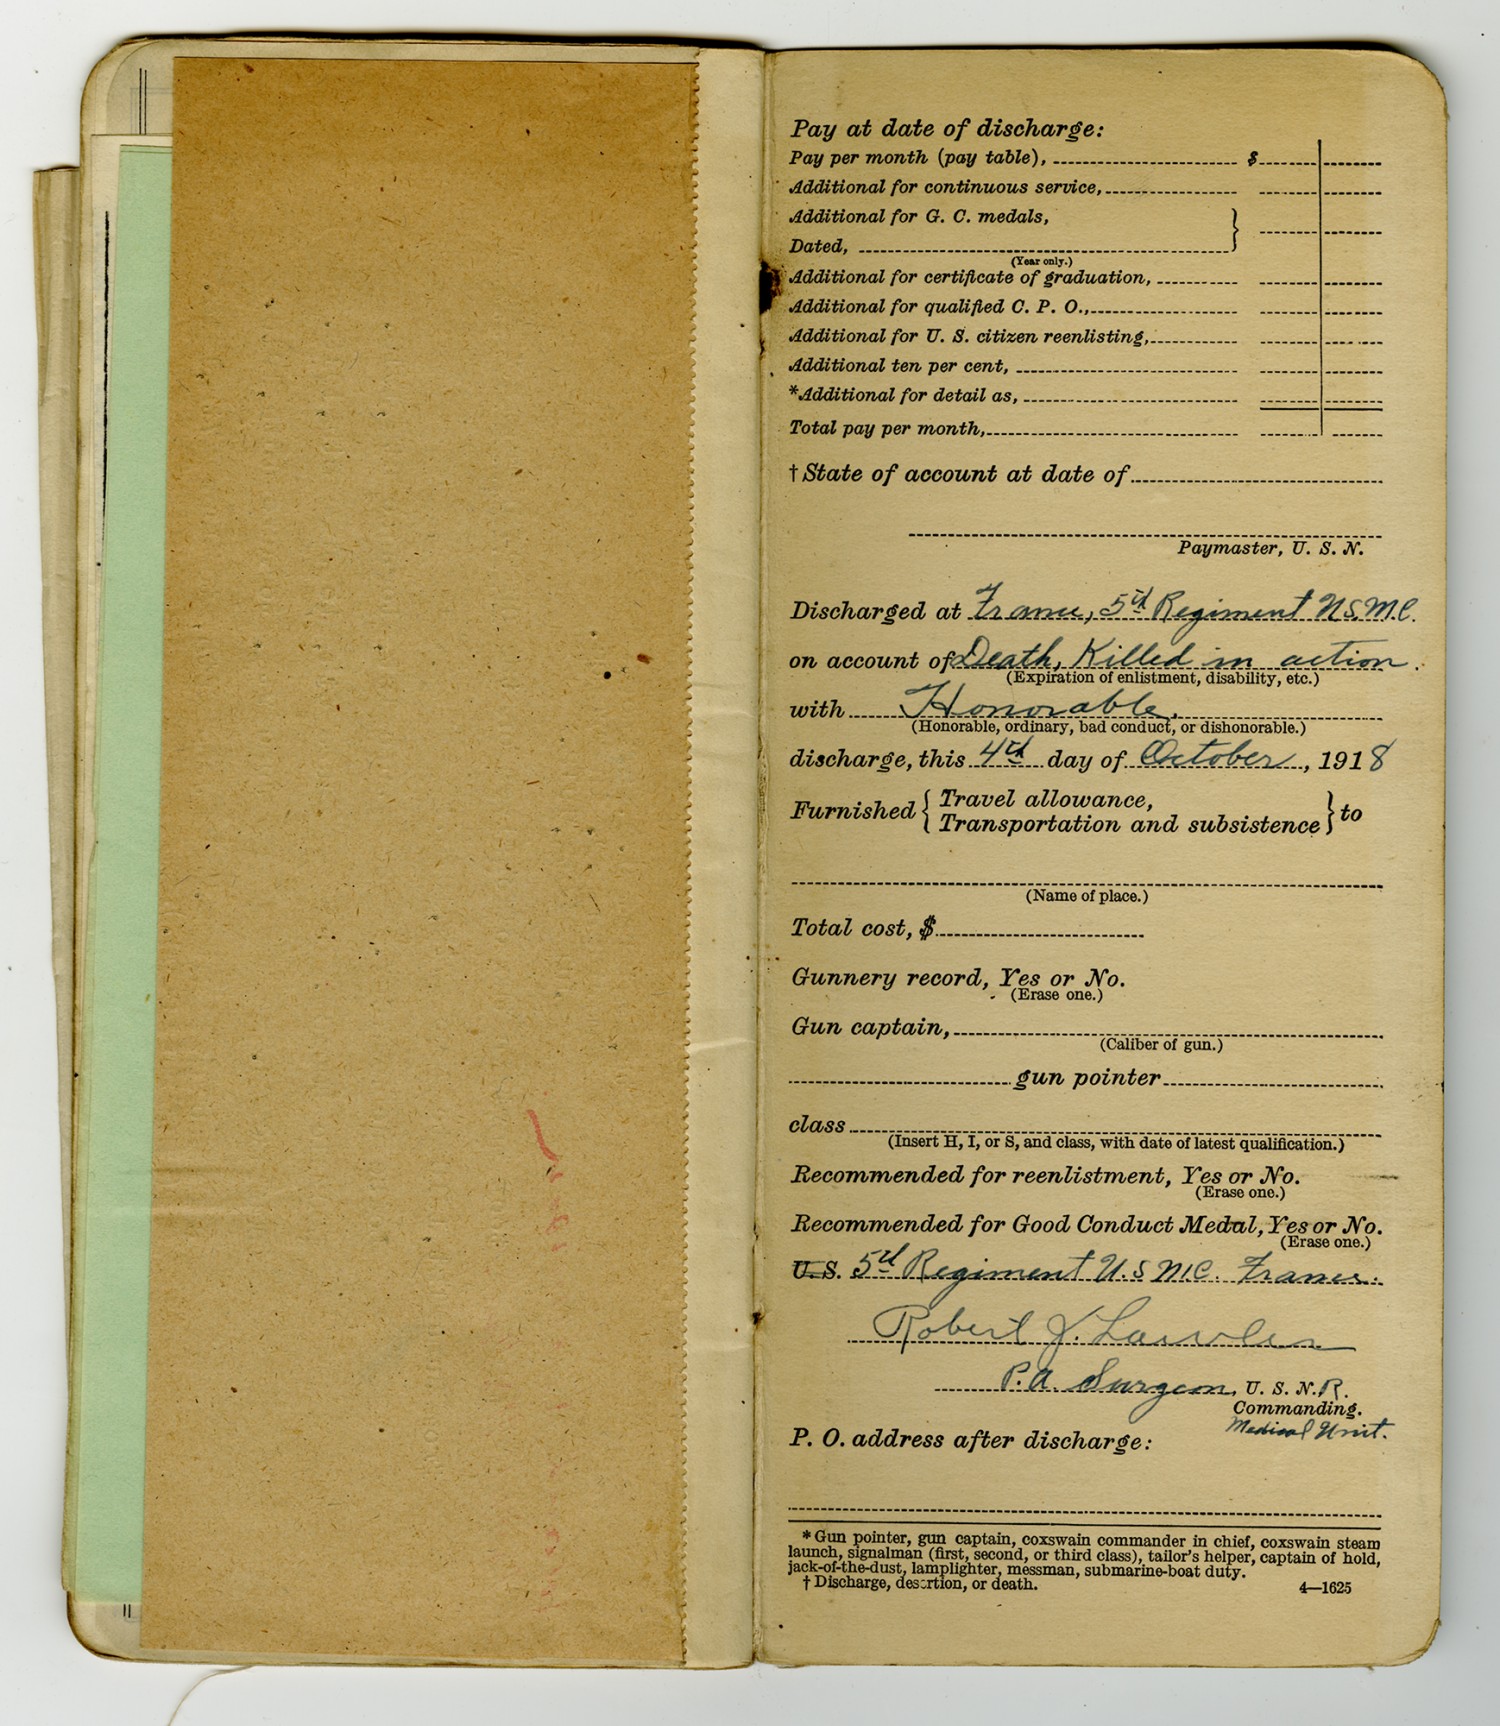 Pay at date of discharge:
Pay per month (pay table), $
Additional for continuous service,
Additional for G. C. medals,
Dated,
(Year only.)
Additional for certificate of graduation,
Additional for qualified C. P. O.,
Additional for U. S. citizen reenlisting,
Additional ten per cent,
*Additional for detail as,
Total pay per month,
†State of account at date of
Paymaster, U. S. N.
Discharged at France, 5th Regiment U.S.M.C.
on account of Death, Killed in action.
(Expiration of enlistment, disability, etc.)
with Honorable.
(Honorable, ordinary, bad conduct, or dishonorable.)
discharge, this 4th day of October, 1918
Furnished { Travel allowance,
Transportation and subsistence } to
(Name of place.)
Total cost, $
Gunnery record, Yes or No.
(Erase one.)
Gun captain,
(Caliber of gun.)
gun pointer
class
(Insert H, I, or S, and class, with date of latest qualification.)
Recommended for reenlistment, Yes or No.
(Erase one.)
Recommended for Good Conduct Medal, Yes or No.
(Erase one.)
U. S. 5th Regiment U.S M.C. France.
Robert J. Lawler
P.A. Surgeon, U. S. N.R.
Commanding.
Medical Unit.
P. O. address after discharge:
*Gun pointer, gun captain, coxswain commander in chief, coxswain steam
launch, signalman (first, second, or third class), tailor's helper, captain of hold,
jack-of-the-dust, lamplighter, messman, submarine-boat duty.
†Discharge, desertion, or death. 4—1625